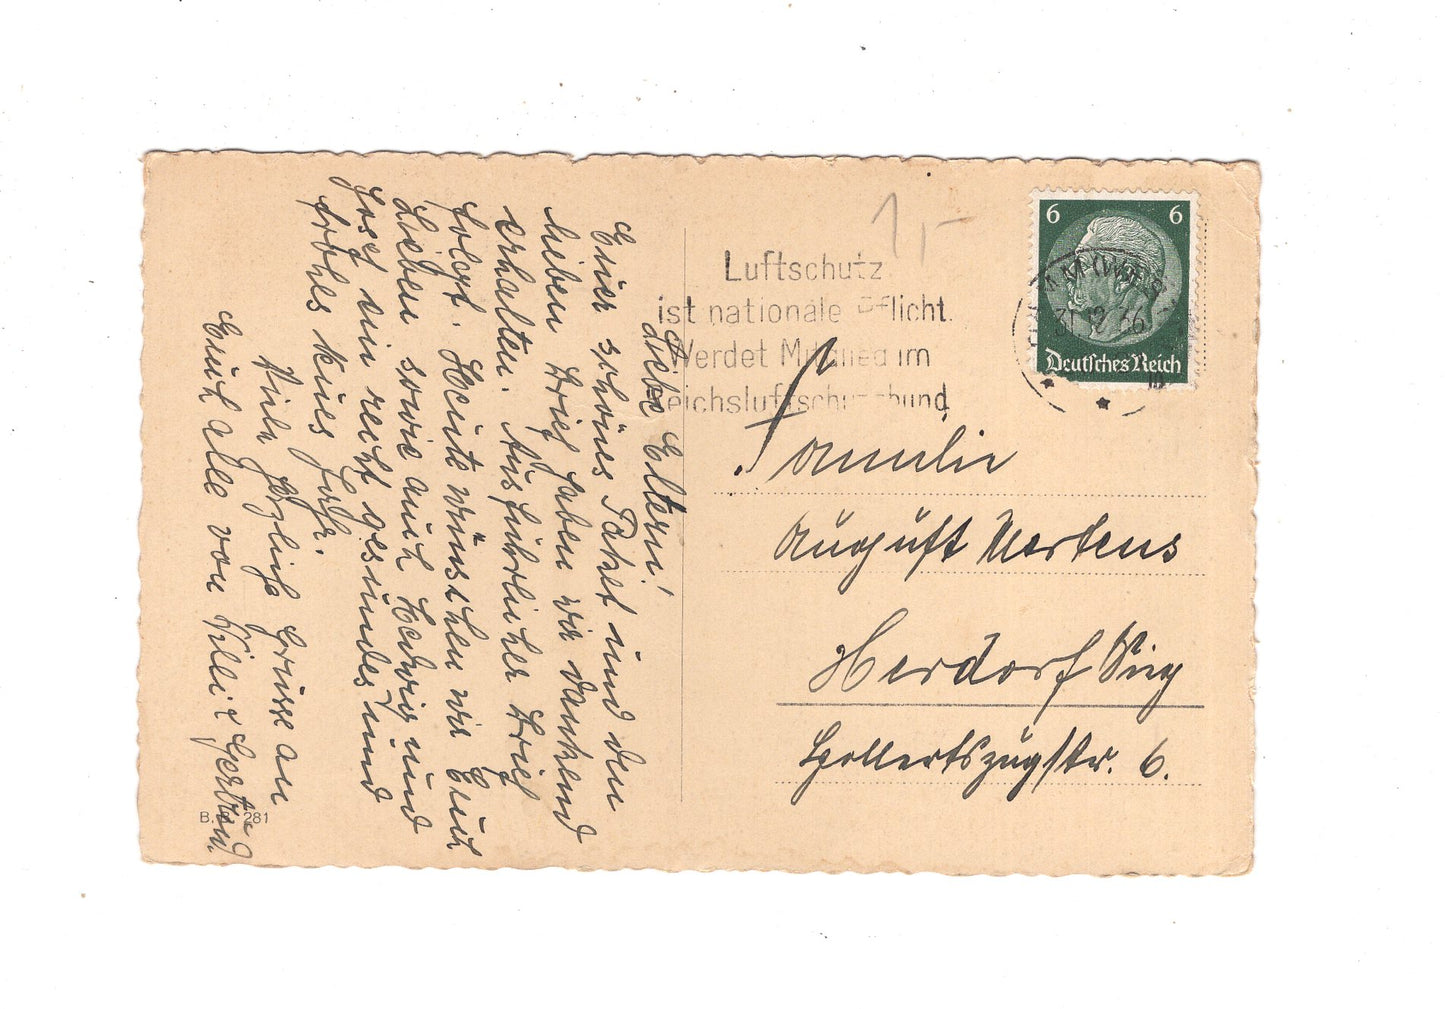 Liebe Eltern!
Euer schönes Paket und den
lieben Brief haben wir dankend
erhalten. Ausführlicher Brief
folgt. Heute wünschen wir Euch
Lieben sowie auch Hedwig und
Josef ein recht gesundes und
frohes neues Jahr.
Viele herzliche Grüsse an
Euch alle von Willi & Gertrud.
B. 281
1,-
Luftschutz
ist nationale Pflicht
Werdet Mitglied im
Reichsluftschutzbund
6 6
Deutsches Reich
31 12 36
Familie
August Mertens
Herdorf Sieg
Hollertszugstr. 6.